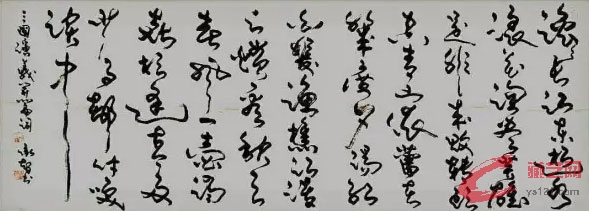 滚长江东逝水
浪花淘尽英雄
是非成败转头
空青山依旧在
幾度夕陽红
白髮漁樵江渚
上惯看秋月
春风一壶浊
酒喜相逢古今多
少事都付笑
谈中
三国演义开篇词